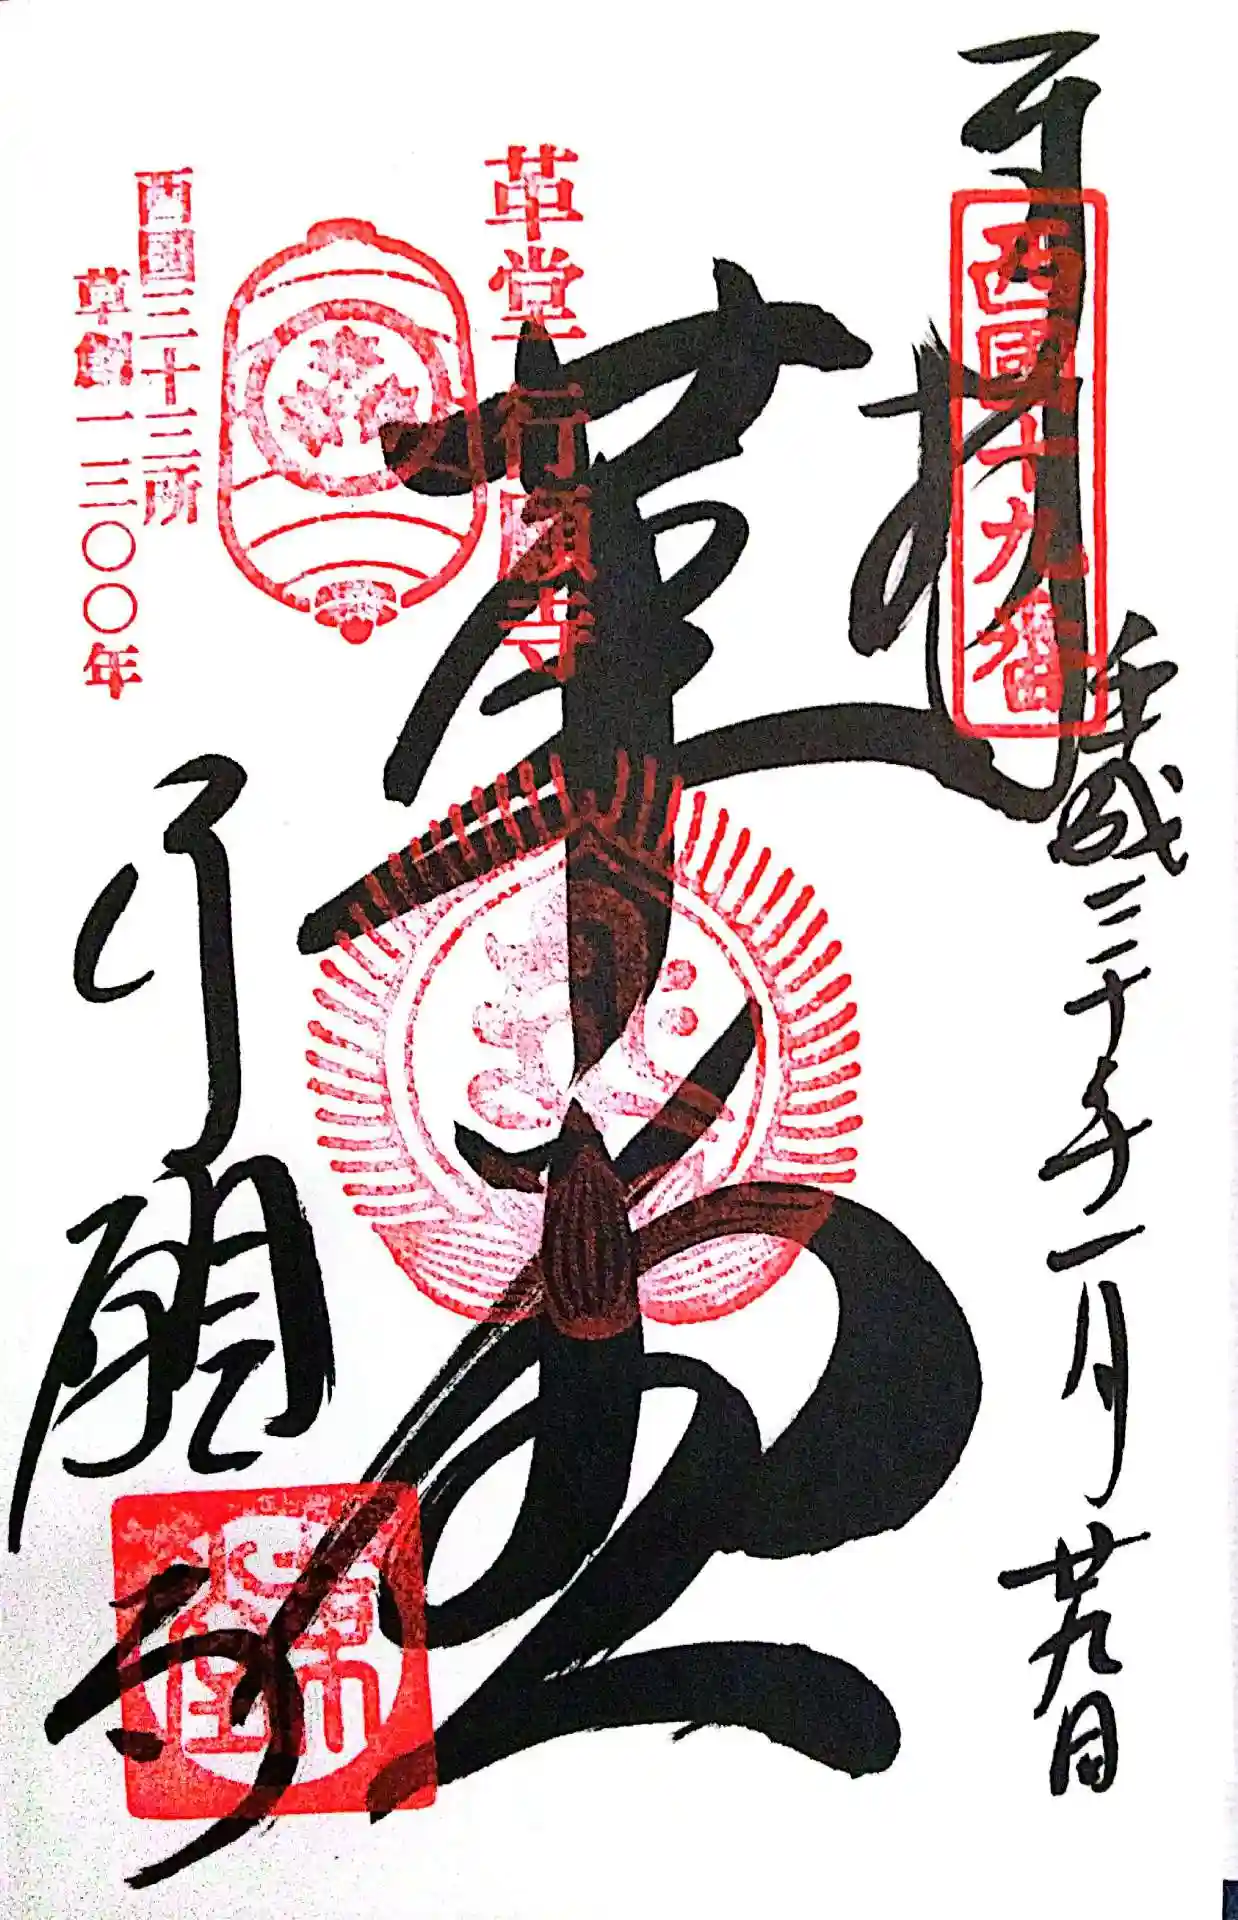 奉拝
西国十九番
平成三十年一月廿九日
革堂
革堂 行願寺
西国三十三所
草創一三〇〇年
行願寺
革堂